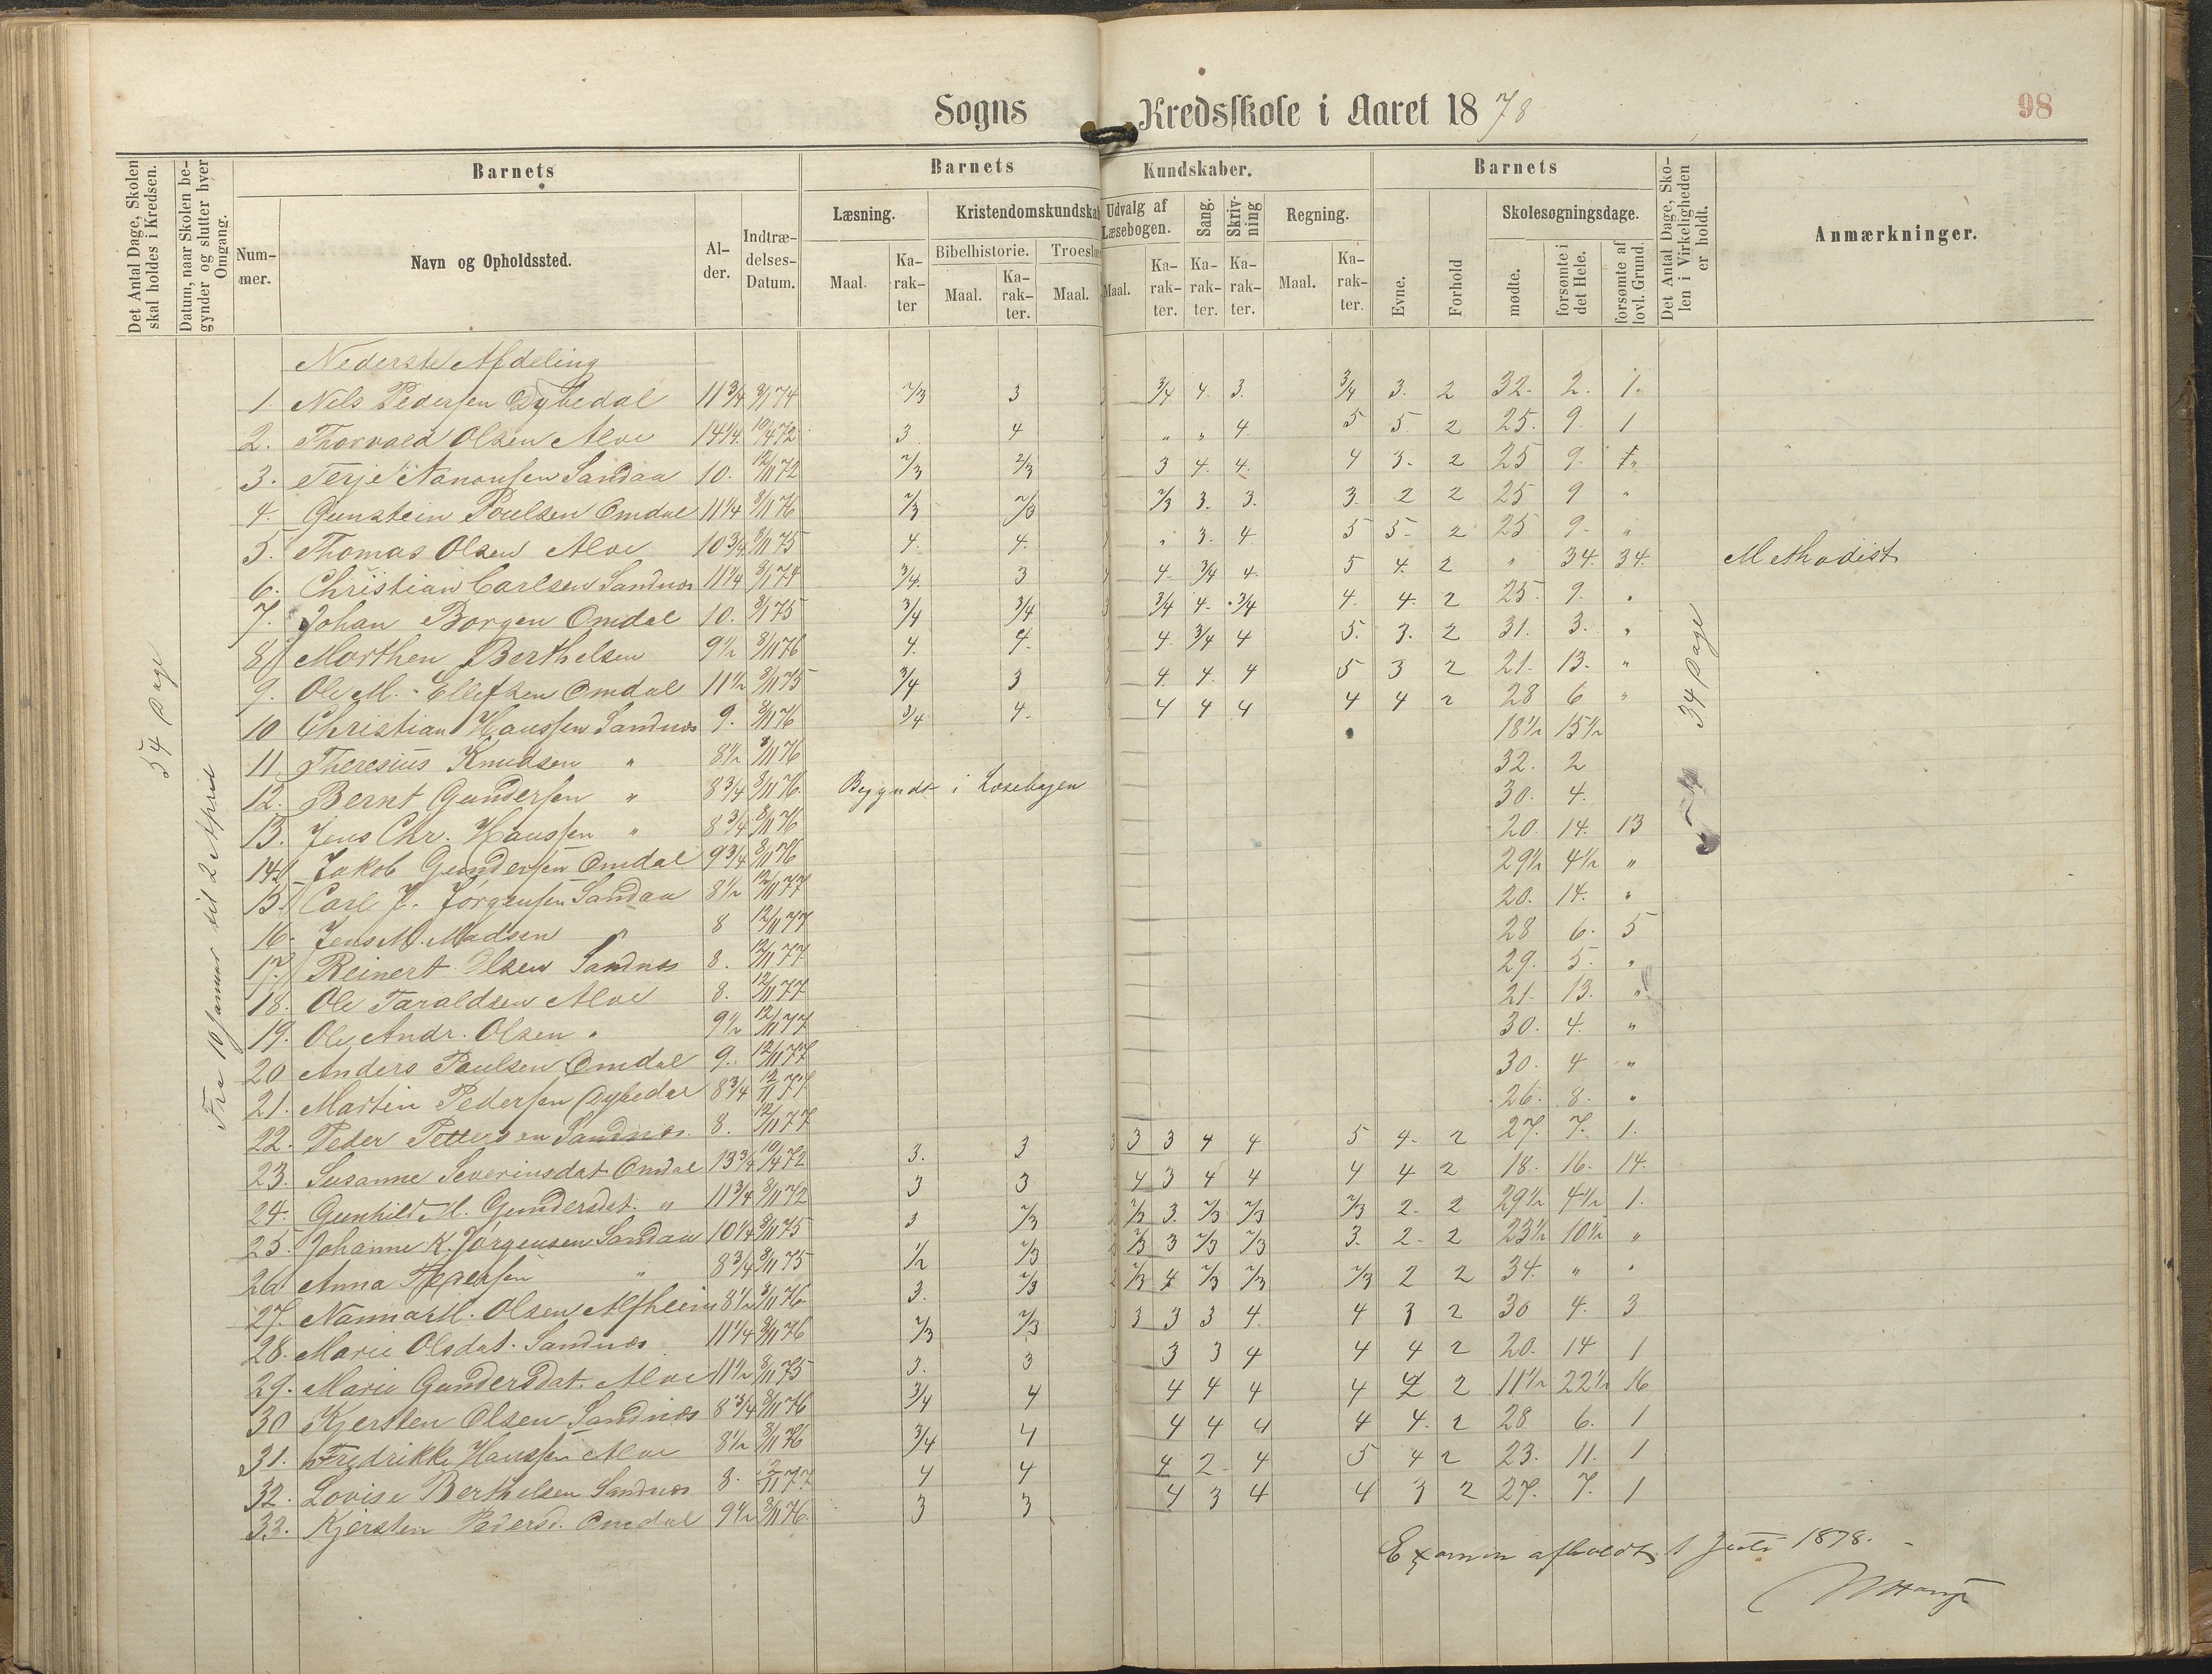 Sogns Kredsskole i Aaret 1878
98
Det Antal Dage, Skolen skal holdes i Kredsen.
Datum, naar Skolen begynder og slutter hver Omgang.
Barnets
Nummer.
Navn og Opholdssted.
Alder.
Indtrædelses-Datum.
Barnets Kundskaber.
Læsning.
Maal.
Karakter
Kristendomskundskab
Bibelhistorie.
Maal.
Karakter.
Troeslæ
Maal.
Udvalg af Læsebogen.
Maal.
Karakter.
Sang.
Karakter.
Skrivning
Karakter.
Regning.
Maal.
Karakter.
Barnets
Evne.
Forhold
Skolesøgningsdage.
mødte.
forsømte i det Hele.
forsømte af lovl. Grund.
Det Antal Dage, Skolen i Virkeligheden er holdt.
Anmærkninger.
54 Dage
Fra 10 Januar til 2 April
34 Dage
Nederste Afdeling
1. Nels Pedersen Dybedal 11 3/4 8/1 74 2/3 3 3/4 4. 3. 3/4 3. 2 32. 2. 1.
2. Thorvald Olsen Alve 14 1/4. 10/4 72 3 4 " " 4. 5 5. 2 25. 9. 1
3. Terje Nanonsen Sandaa 10. 12/11 72 2/3 2/3 3 4. 4. 4 3. 2 25 9.
4. Gunstein Poulsen Omdal 11 1/4 8/11 76 2/3 2/3 2/3 3. 3. 3. 2 2 25 9 "
5. Thomas Olsen Alve 10 3/4 8/11 75 4. 4. " 3. 4 5 5- 2 25 9- "
6. Christian Carlsen Sandnes 11 1/4 8/1 74 3/4. 3 4. 3/4 4. 5 4. 2 " 34. 34. Methodist
7. Johan Borgen Omdal 10. 8/1 75 3/4 3/4 3/4 4. 3/4 4. 4. 2 25. 9. "
8 Morthen Berthelsen 9 1/2 8/11 76 4. 4. 4. 3/4 4 5. 3. 2 31. 3. "
9. Ole M. Ellefsen Omdal 11 1/2 8/11 75 3/4 3 4. 4. 4 5 3 2 21. 13. "
10 Christian Hanssen Sandnes 9. 8/11 76 3/4 4. 4 4 4 4 4 2 28 6 "
11. Theresius Knudsen " 8 1/2 8/11 76 18 1/2 15 1/2
12. Bernt Gundersen " 8 3/4 8/11 76. Begyndt i Læsebogen 32. 2
13. Jens Chr. Hanssen " 8 3/4 8/11 76 30. 4.
14. Jakob Gundersen Omdal 9 3/4 8/11 76 20. 14. 13
15. Carl J. Jørgensen Sandaa 8 1/2 12/11 77 29 1/2 4 1/2 "
16. Jens M. Madsen " 8 12/11 77 20. 14. "
17. Reinert Olsen Sandnes 8. 12/11 77 28 6. 5
18. Ole Taraldsen Alve 8. 12/11 77 29. 5. "
19. Ole Andr. Olsen " 9 1/2 12/11 77 21. 13. "
20 Anders Paulsen Omdal 9. 12/11 77 30. 4. "
21. Martin Pedersen Dybedal 8 3/4 12/11 77 30. 4 "
22. Peder Pettersen Sandnes. 8. 12/11 77 26. 8. "
23. Susanne Severinsdat Omdal 13 3/4 10/4 72 3. 3 3 3 4 4 5 4. 2 27. 7. 1.
24. Gunhild M. Gundersdat. " 11 3/4 8/11 72 3 3 4 3 4 4 4 4 2 18. 16. 14.
25. Johanne K. Jørgensen Sandaa 10 1/4 8/11 75 3 2/3 2/3 3. 2/3 2/3 2/3 2. 2 29 1/2 4 1/2 1.
26. Anna " 8 3/4 8/11 75 1/2 2/3 2/3 3 2/3 2/3 3. 2. 2 23 1/2 10 1/2 "
27. Nanna M. Olsen Alfheim 8 1/2 8/11 76. 3. 2/3 2/3 4 2/3 2/3 2/3 2 2 34. " "
28. Marie Olsdat. Sandnes 11 1/4 8/11 76 2/3 2/3 3 3 3 4. 4 3 2 30 4. 3
29. Marie Gundersdat. Alve 11 1/2 8/11 75 3. 3 3 3 4 4 4 2 20. 14 1
30 Kjersten Olsen Sandnes 8 3/4 8/11 76 3/4 4 4 4 4 4 2 11 1/2 22 1/2 16
31. Fredrikke Hanssen Alve 8 1/2 8/11 76 3/4 4 4 4 4 4 4. 2 28 6. 1
32. Lovise Berthelsen Sandnes 8. 12/11 77 4 4 4 2 4 5 4 2 23. 11. 1
33. Kjersten Pedersd. Omdal 9 1/2 8/11 76. 3 3 4 3 4 4 3 2 27. 7. 1
Examen afholdt 1 Juli 1878.